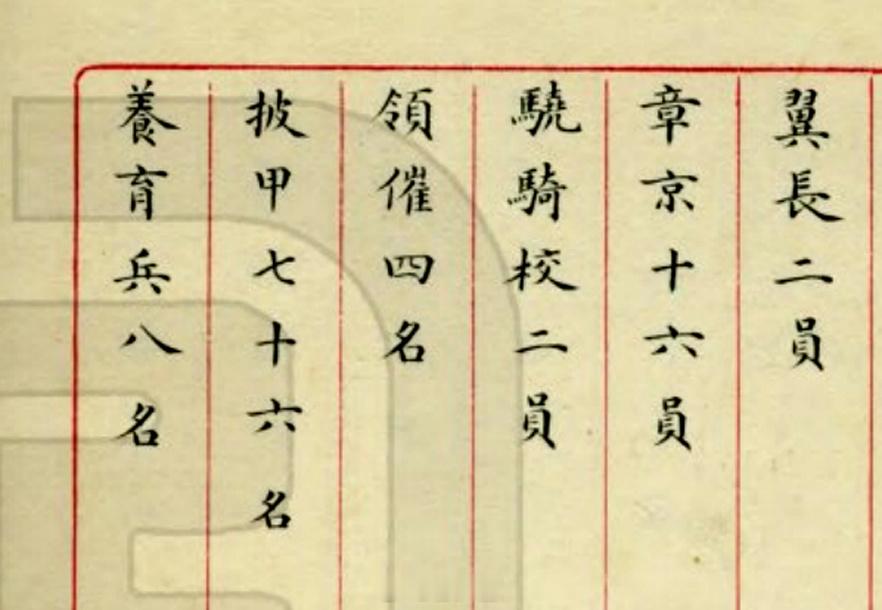 翼長二員
章京十六員
驍騎校二員
領催四名
披甲七十六名
養育兵八名